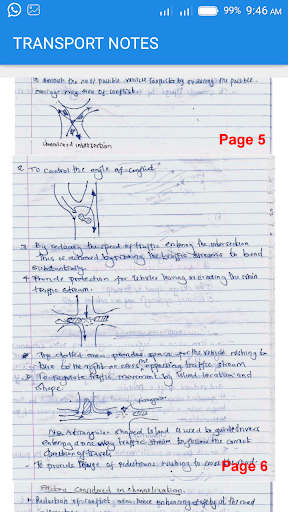 99% 9:46 AM
TRANSPORT NOTES
vehicle conflicts by reducing the possible
area of conflict.
Channelized intersection
Page 5
2. To control the angle of conflict
3. By reducing the speed of traffic entering the intersection
This is achieved by the traffic streams to bend
substantially
4. Provide protection for vehicles leaving or crossing the main
traffic stream.
The area provides space for the vehicle wishing to
turn to the right or cross the opposing traffic stream
To regulate traffic movement by island location and
shape
triangular
A triangular shaped island is used to guide drivers
entering a one way traffic stream to follow the correct
direction of travel
- To provide refuge of pedestrians wishing to cross the road
Page 6
Factors considered in channelization.
Reduction of conflict area hence enhancing safety of the road